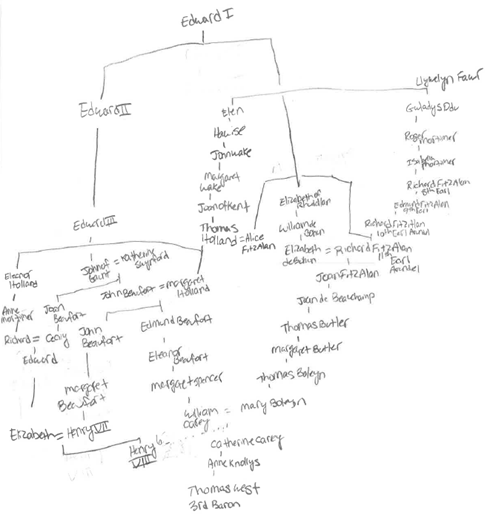 Edward I
Llywelyn Fawr
Edward II
Elen
Gwladys Ddu
Hawise
Roger Mortimer
Joan Wake
Isabella Mortimer
Margaret Wake
Richard FitzAlan
8th Earl
Joan of Kent
Elizabeth of Rhuddlan
Edmund FitzAlan
9th Earl
Edward III
Thomas Holland = Alice FitzAlan
William de Bohun
Richard FitzAlan
10th Earl Arundel
Eleanor Holland
John of Gaunt = Katherine Swynford
Elizabeth de Bohun = Richard FitzAlan
11th Earl Arundel
John Beaufort = Margaret Holland
Joan FitzAlan
Anne Mortimer
Joan Beaufort
Joan de Beauchamp
Richard = Cecily
John Beaufort
Edmund Beaufort
Thomas Butler
Edward
Eleanor Beaufort
Margaret Butler
Margaret Beaufort
Margaret Spencer
Thomas Boleyn
William Carey = Mary Boleyn
Elizabeth = Henry VII
Henry VIII
Catherine Carey
Anne Knollys
Thomas West
3rd Baron